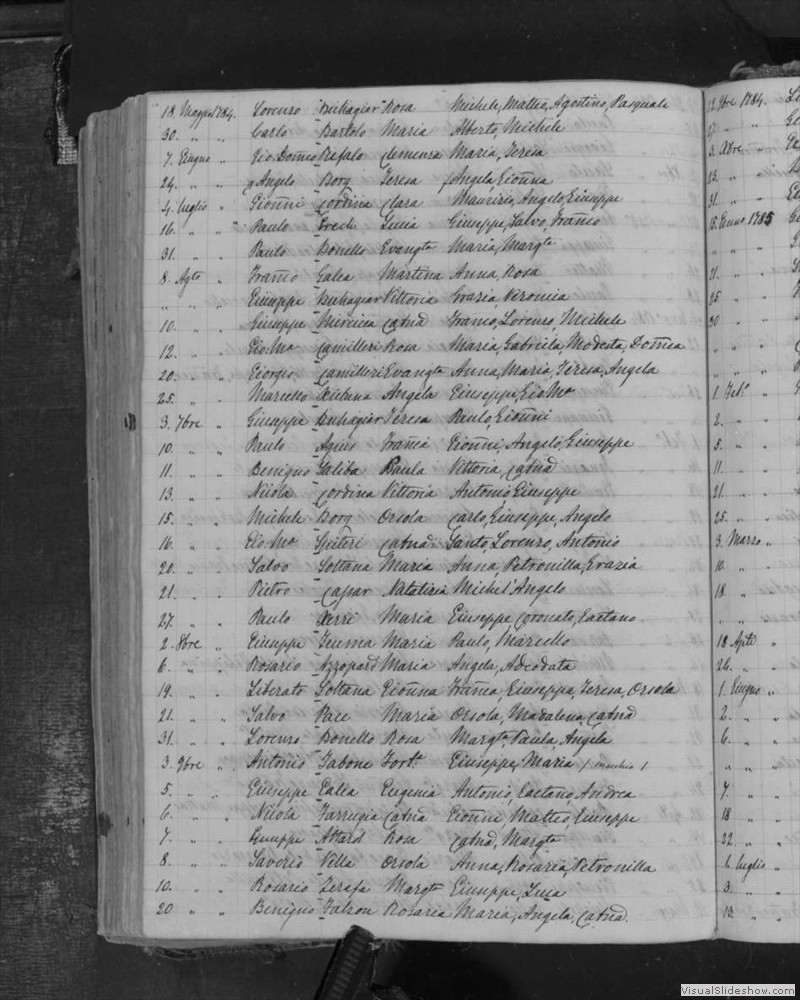 18. Maggio 1784. Lorenzo Buhagiar Rosa Michele, Matteo, Agostino, Pasquale
30. " " Carlo Bartolo Maria Alberto, Michele
7. Giugno " Gio Dom̃co Refalo Clemenza Maria, Teresa
24. " " Angelo Borg Teresa Angela, Gioñna
4. Luglio " Gioñni Cordina Clara Maurizio, Angelo, Giuseppe
16. " " Paulo Grech Lucia Giuseppe, Salvo, Frañco
31. " " Paulo Bonello Evangta Maria, Margta
8. Agto " Frañco Galea Martina Anna, Rosa
" " " Giuseppe Buhagiar Vittoria Grazia, Veronica
10. " " Giuseppe Mircieca Catña Franco, Lorenzo, Michele
12. " " Gio: Ma Camilleri Rosa Maria, Gabriela, Modesta, Dom̃ca
20. " " Giorgio Camilleri Evangta Anna, Maria, Teresa, Angela
25. " " Marcello Xicluna Angela Giuseppe, Gio Ma
3. 7bre " Giuseppe Buhagiar Teresa Paulo, Gioñni
10. " " Paulo Agius Frañca Gioñni, Angelo, Giuseppe
11. " " Benigno Saliba Paula Vittoria, Catña
13. " " Nicola Cordina Vittoria Antonio, Giuseppe
15. " " Michele Borg Orsola Carlo, Giuseppe, Angelo
16. " " Gio: Ma Spiteri Catña Santo, Lorenzo, Antonio
20. " " Salvo Soltana Maria Anna, Petronilla, Grazia
21. " " Pietro Caspar Natalizia Michel'Angelo
27. " " Paulo Xerri Maria Giuseppe, Coronato, Gaetano
2. 8bre " Giuseppe Zumma Maria Paulo, Marcello
6. " " Rosario Azzopard Maria Angela, Adeodata
19. " " Liberato Soltana Gioñna Frañca, Giuseppa, Teresa, Orsola
21. " " Salvo Pace Maria Orsola, Madalena, Catña
31. " " Lorenzo Bonello Rosa Margta, Paula, Angela
3. 9bre " Antonio Tabone Forta Giuseppe, Maria / maschio /
5. " " Giuseppe Galea Eugenia Antonio, Gaetano, Andrea
6. " " Nicola Farrugia Catña Gioñni Matteo, Giuseppe
7. " " Giuseppe Attard Rosa Catña, Margta
8. " " Saverio Vella Orsola Anna, Rosaria, Petronilla
10. " " Rosario Zerafa Margta Giuseppe, Luca
20 " " Benigno Falzon Rosaria Maria, Angela, Catña.
22. 9bre 1784.
27. "
3. Xbre "
23. " "
31. " "
15. Genno 1785
" " "
21. " "
25 " "
30 " "
" " "
" " "
1. Feb. "
2. " "
5. " "
11. " "
21. " "
25. " "
3. Marzo "
10. " "
18. " "
" " "
18 Aple "
26. " "
1. Giugno "
2. " "
6. " "
" " "
7. " "
18 " "
22. " "
1. Luglio "
3. " "
13. " "
VisualSlideshow.com